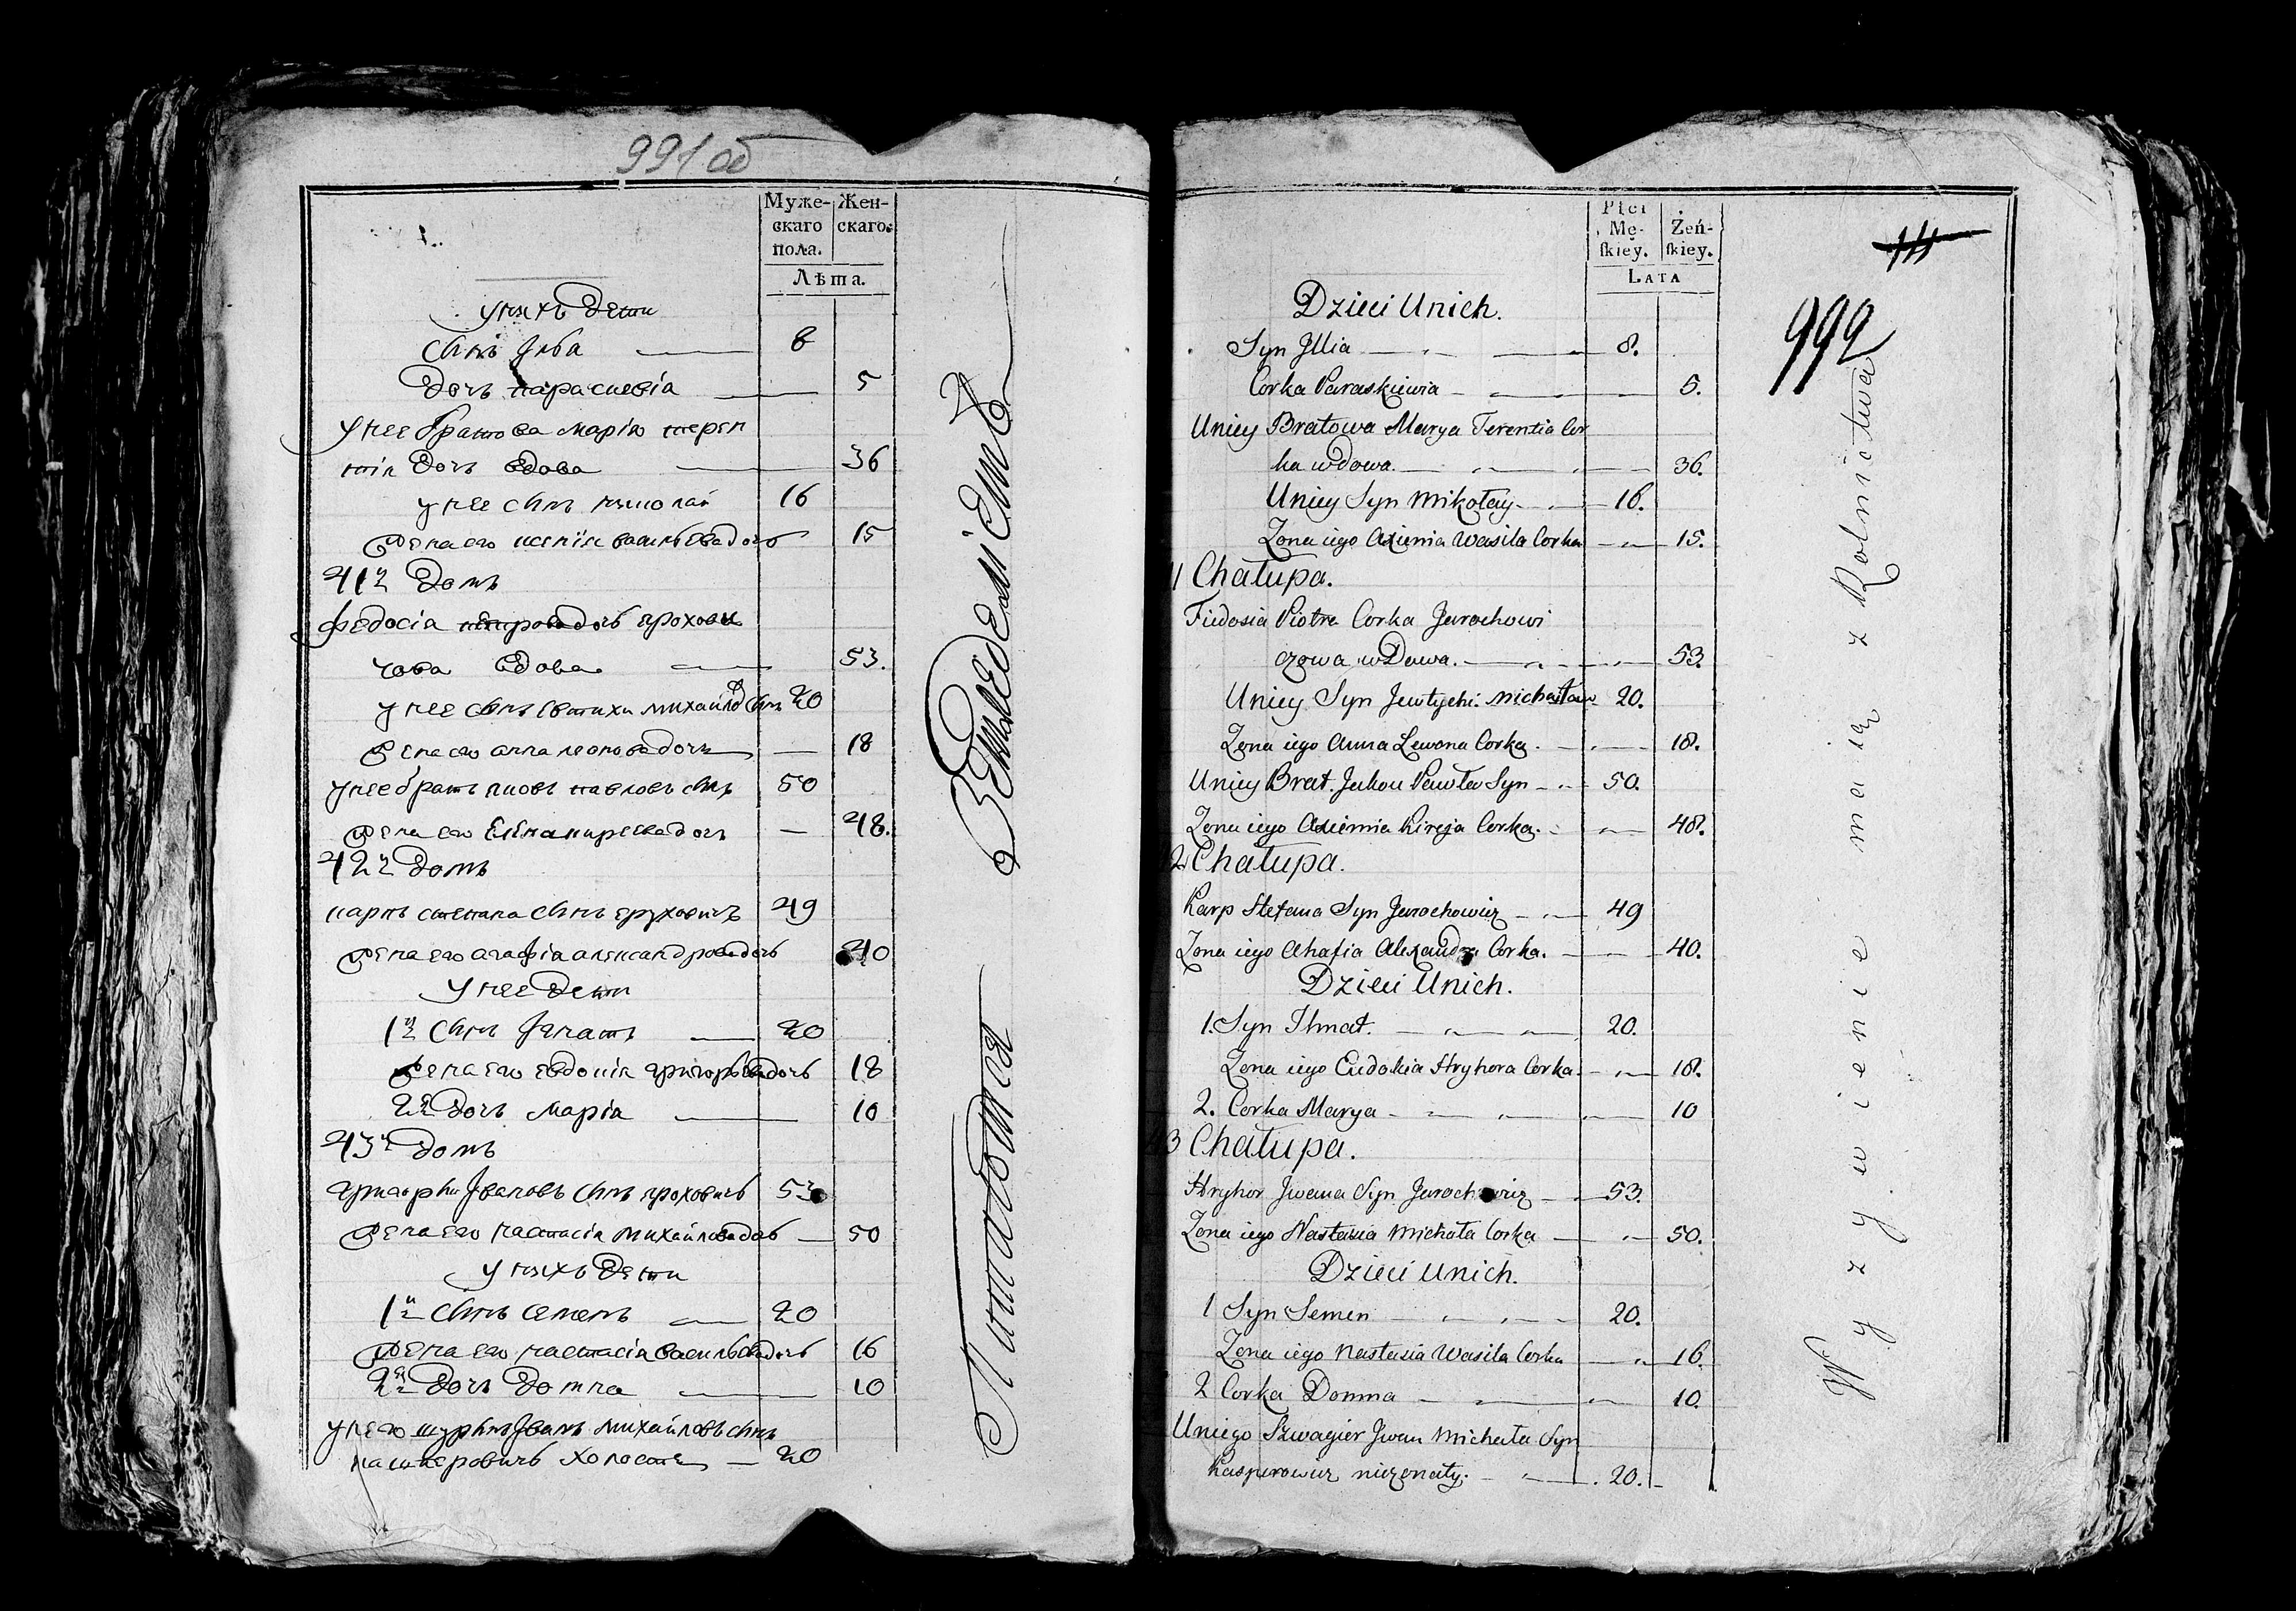 991 об
Муже-
скаго
пола.
Жен-
скаго.
Лѣта.
у нихъ Дети
Сынъ Илья 8
Дочь параскевіа 5
у нее братова марія терен
тія Дочь вдова 36
у нее сынъ николай 16
жена его ксенія васильева дочь 15
41й Домъ
Федосіа петрова дочь ерохови
чова вдова 53.
у нее сынъ евтихи михайло сынъ 20
жена его анна леонова дочь 18
у нее братъ яковъ павловъ сынъ 50
жена его Елена киреева дочь 48.
42й Домъ
карпъ степана сынъ еруховичъ 49
жена его агафіа александрова дочь 40
у нее Дети
1й сынъ Игнатъ 20
жена его евдокіа григорьева дочь 18
2я Дочь Маріа 10
43й Домъ
григорьи Ивановъ сынъ ероховичъ 53
жена его настасіа михайлова дочь 50
у нихъ Дети
1й сынъ семенъ 20
жена его настасіа васильева дочь 16
2я Дочь Домна 10
у него шуринъ Иванъ михайловъ сынъ
кашперовичъ холостъ 20
Питаются Земледеліемъ
Płci
Mę-
skiey.
Żeń-
skiey.
Lata
Dzieci Unich.
Syn Jllia 8.
Corka Paraskiewia 5.
Uniey Bratowa Marya Terentia Cor
ka wdowa. 36.
Uniey Syn Mikołay 16.
Zona iego Axienia Wasila Corka 15.
1 Chałupa.
Fiedosia Piotra Corka Jarochowi
czowa wdowa. 53.
Uniey Syn Jewtychi. Michałow 20.
Zona iego Anna Lewona Corka. 18.
Uniey Brat. Jakow Pawła Syn 50.
Zona iego Axienia Kireja Corka. 48.
2 Chałupa.
Karp Stefana Syn Jarochowicz 49
Zona iego Ahafia Alexandra Corka. 40.
Dzieci Unich.
1. Syn Ihnat. 20.
Zona iego Eudokia Hryhora Corka. 18.
2. Corka Marya 10
3 Chałupa.
Hryhor Jwana Syn Jarochowicz 53.
Zona iego Nastasia Michała Corka 50.
Dzieci Unich.
1 Syn Semen 20.
Zona iego Nastasia Wasila Corka 16.
2 Corka Domna 10.
Uniego Szwagier Jwan Michała Syn
Kasperowicz niezonaty. 20.
992
Wyzywienie maią z Rolnictwa